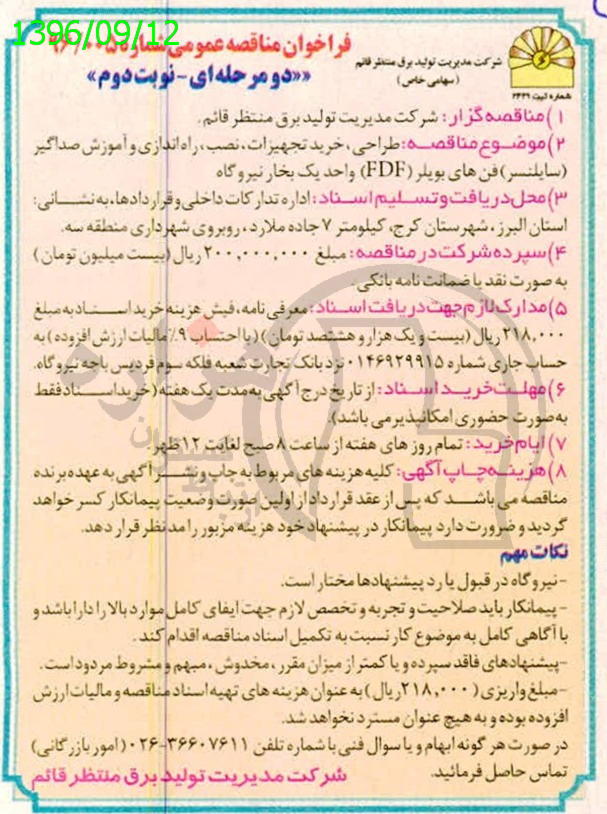 1396/09/12
فراخوان مناقصه عمومی شماره ۹۶/۰۰۵
««دو مرحله‌ای - نوبت دوم»
شرکت مدیریت تولید برق منتظر قائم
(سهامی خاص)
شماره ثبت ۲۴۲۹
۱) مناقصه‌گزار: شرکت مدیریت تولید برق منتظر قائم.
۲) موضوع مناقصه: طراحی، خرید تجهیزات، نصب، راه‌اندازی و آموزش صداگیر
(سایلنسر) فن های بویلر (FDF) واحد یک بخار نیروگاه
۳) محل دریافت و تسلیم اسناد: اداره تدارکات داخلی و قراردادها، به نشانی:
استان البرز، شهرستان کرج، کیلومتر ۷ جاده ملارد، روبروی شهرداری منطقه سه.
۴) سپرده شرکت در مناقصه: مبلغ ۲۰۰,۰۰۰,۰۰۰ ریال (بیست میلیون تومان)
به صورت نقد یا ضمانت نامه بانکی.
۵) مدارک لازم جهت دریافت اسناد: معرفی نامه، فیش هزینه خرید اسناد به مبلغ
۲۱۸,۰۰۰ ریال (بیست و یک هزار و هشتصد تومان) (با احتساب ۹٪ مالیات ارزش افزوده) به
حساب جاری شماره ۰۱۴۶۹۲۹۹۱۵ نزد بانک تجارت شعبه فلکه سوم فردیس باجه نیروگاه.
۶) مهلت خرید اسناد: از تاریخ درج آگهی به مدت یک هفته (خرید اسناد فقط
به صورت حضوری امکانپذیر می باشد).
۷) ایام خرید: تمام روز های هفته از ساعت ۸ صبح لغایت ۱۲ ظهر.
۸) هزینه چاپ آگهی: کلیه هزینه های مربوط به چاپ و نشر آگهی به عهده برنده
مناقصه می باشد که پس از عقد قرارداد از اولین صورت وضعیت پیمانکار کسر خواهد
گردید و ضرورت دارد پیمانکار در پیشنهاد خود هزینه مزبور را مد نظر قرار دهد.
نکات مهم
- نیروگاه در قبول یا رد پیشنهادها مختار است.
- پیمانکار باید صلاحیت و تجربه و تخصص لازم جهت ایفای کامل موارد بالا را دارا باشد و
با آگاهی کامل به موضوع کار نسبت به تکمیل اسناد مناقصه اقدام کند.
- پیشنهادهای فاقد سپرده و یا کمتر از میزان مقرر، مخدوش، مبهم و مشروط مردود است.
- مبلغ واریزی (۲۱۸,۰۰۰ ریال) به عنوان هزینه های تهیه اسناد مناقصه و مالیات ارزش
افزوده بوده و به هیچ عنوان مسترد نخواهد شد.
در صورت هر گونه ابهام و یا سوال فنی با شماره تلفن ۳۶۶۰۷۶۱۱-۰۲۶ (امور بازرگانی)
تماس حاصل فرمائید.
شرکت مدیریت تولید برق منتظر قائم